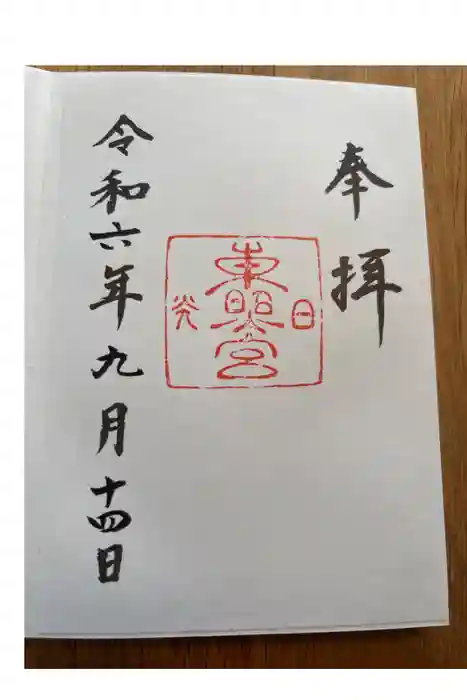 奉拝
日光
東照宮
令和六年九月十四日